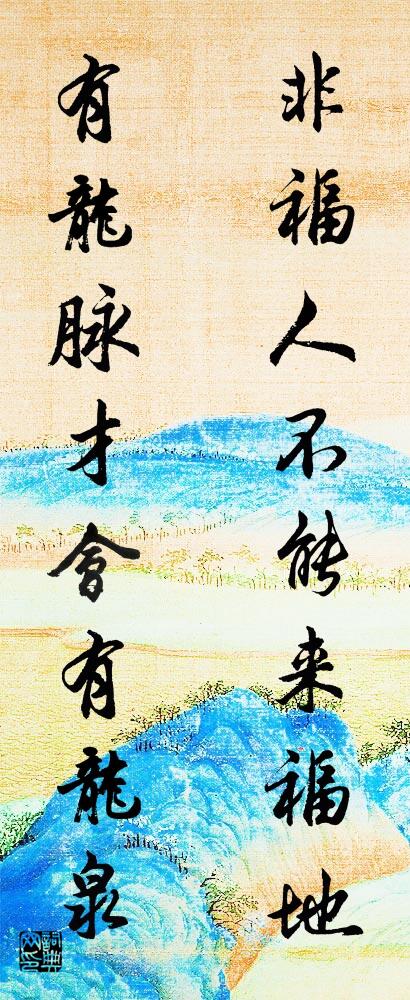 非福人不能来福地
有龍脉才會有龍泉